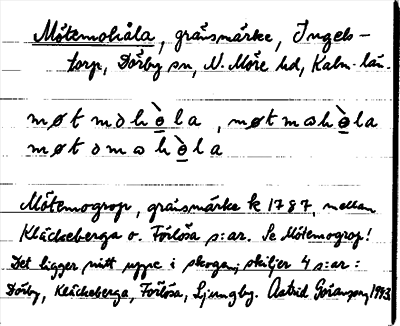 Mötemohåla, gränsmärke, Ingels-
torp, Dörby sn, N. Möre hd, Kalm. län.
møt mɔhò̱la, møt mɷhò̱la
møt ɔmɷhò̱la
Mötemogrop, gränsmärke k 1787, mellan
Kläckeberga o. Förlösa s:ar. Se Mötemogrop!
Det ligger mitt uppe i skogen; skiljer 4 s:ar:
Dörby, Kläckeberga, Förlösa, Ljungby. Astrid Göransson 1943.